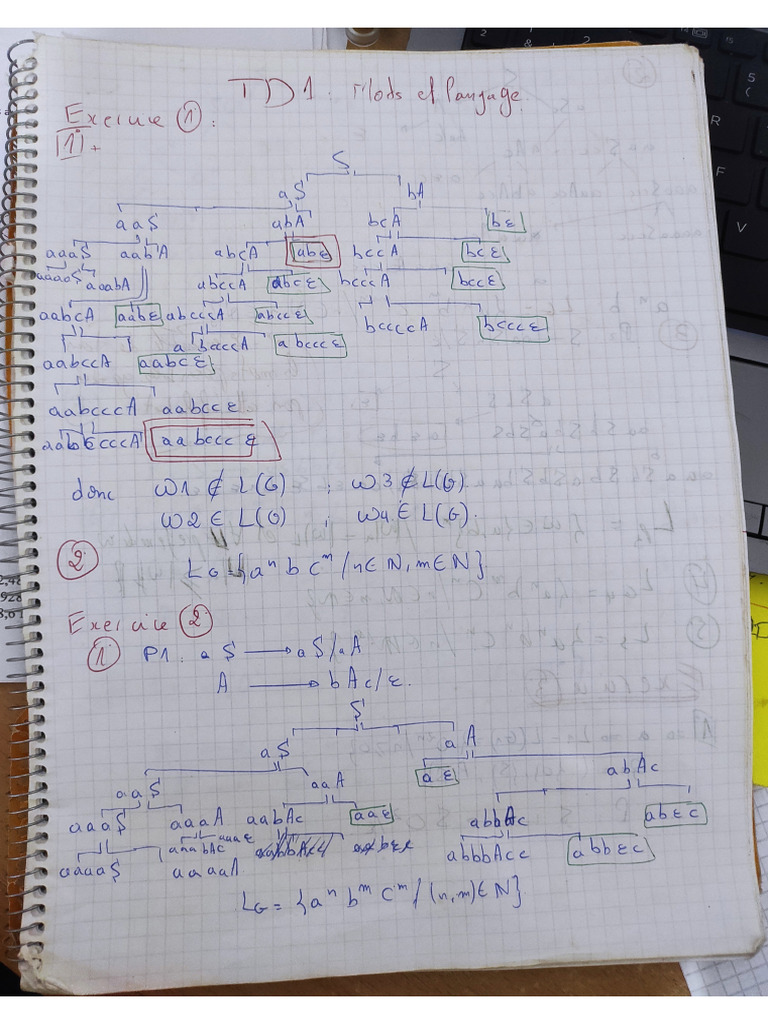 TD1: Mots et langage.
Exercice ①:
[1] +
S
aS bA
aaS abA bcA bε
aaaS aabA abcA abε bccA bcε
aaaaS aaabA abccA abcε bcccA bccε
aabcA aabε abcccA abccε bccccA bcccε
aabccA aabcε abccccA abcccε
aabcccA aabccε
aabccccA aabcccε
donc W1 ∉ L(G) ; W3 ∉ L(G)
W2 ∈ L(G) ; W4 ∈ L(G).
② LG = {aⁿ b cᵐ / n∈N, m∈N}
Exercice ②
① P1: aS → aS/aA
A → bAc/ε.
S
aS aA
aaS aaA aε abAc
aaaS aaaA aabAc aaε abbAc abεc
aaaaS aaaaA aaabAc aaaε abbbAcc abbεc
LG = {aⁿ bᵐ cᵐ / (n,m)∈N}